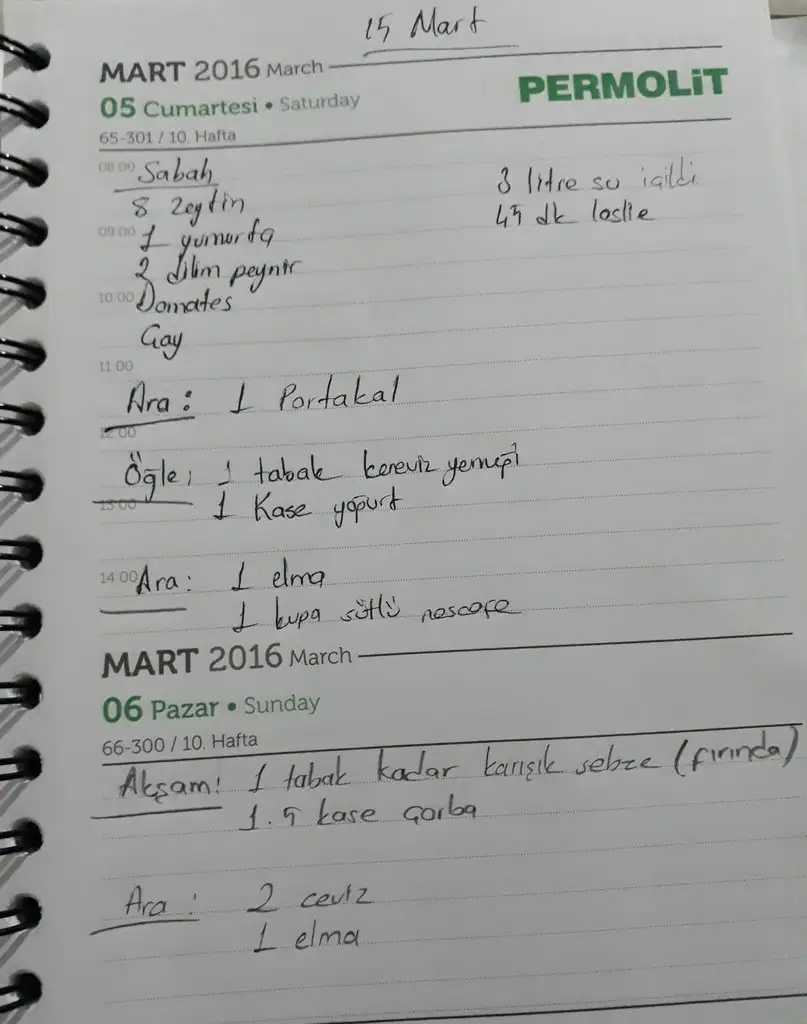 15 Mart
MART 2016 March
05 Cumartesi • Saturday
PERMOLiT
65-301 / 10. Hafta
08:00 Sabah
3 litre su içildi
8 Zeytin
45 dk leslie
09:00 1 yumurta
2 dilim peynir
10:00 Domates
Çay
11:00
Ara : 1 Portakal
12:00
Öğle: 1 tabak kereviz yemeği
13:00
1 Kase yoğurt
14:00 Ara: 1 elma
1 kupa sütlü nescafe
MART 2016 March
06 Pazar • Sunday
66-300 / 10. Hafta
Akşam: 1 tabak kadar karışık sebze (fırında)
1.5 kase çorba
Ara : 2 ceviz
1 elma